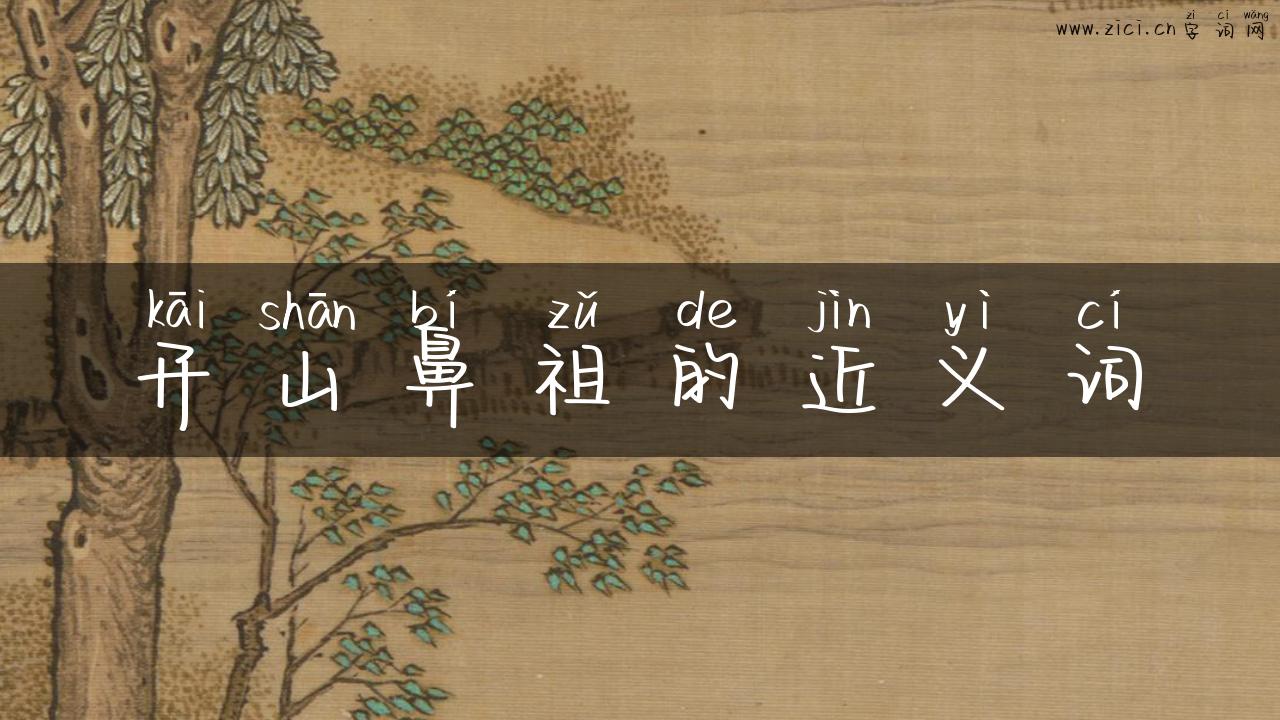 zì cí wǎng
www.zici.cn 字词网
kāi shān bí zǔ de jìn yì cí
开山鼻祖的近义词